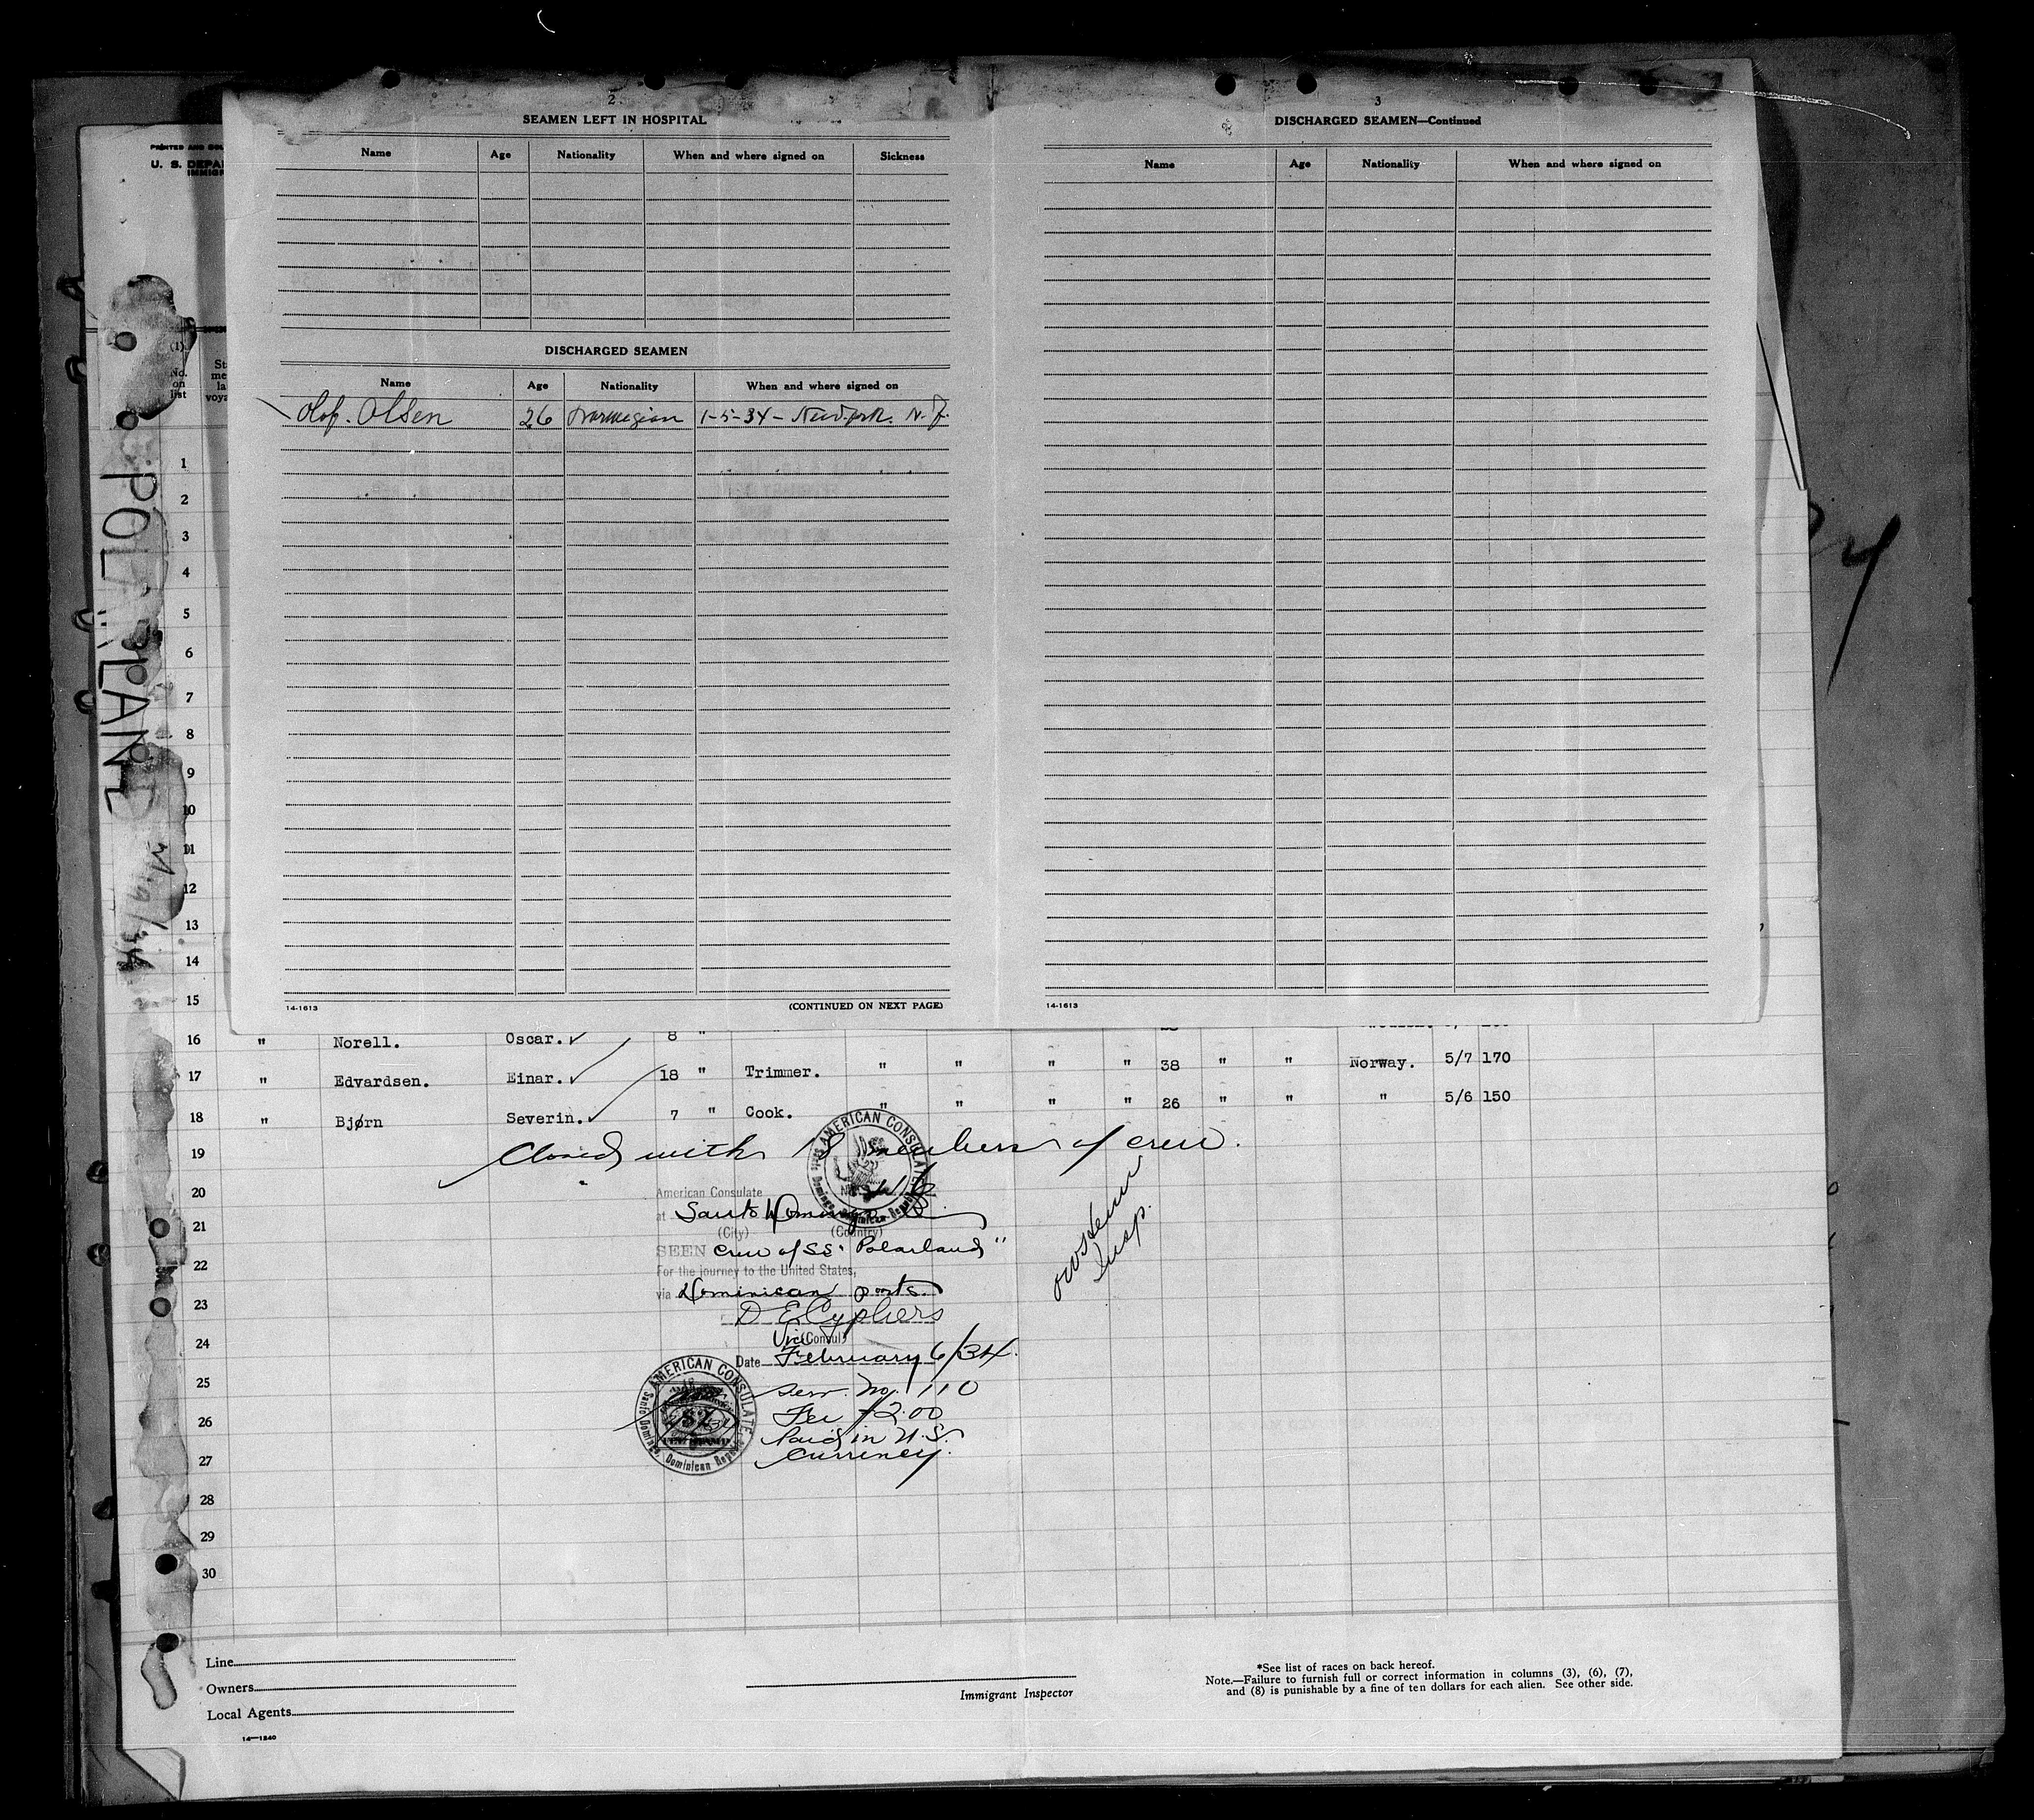 2
SEAMEN LEFT IN HOSPITAL
Name Age Nationality When and where signed on Sickness
DISCHARGED SEAMEN
Name Age Nationality When and where signed on
Olof. Olsen 26 Norwegian 1-5-34- N.J.
14-1613 (CONTINUED ON NEXT PAGE)
3
DISCHARGED SEAMEN—Continued
Name Age Nationality When and where signed on
14-1613
PRINTED AND
U. S. DEPA
IMMIGR
(1)
No.
on
list
St
me
la
voya
POLARLAND
1
2
3
4
5
6
7
8
9
10
11
12
13
14
15
16 " Norell. Oscar. 8 "
17 " Edvardsen. Einar. 18 " Trimmer. " " " " 38 " " Norway. 5/7 170
18 " Bjørn Severin. 7 " Cook. " " " " 26 " " " 5/6 150
19
Closed with 18 members of crew.
20
American Consulate
at Santo Domingo
(City) (Country)
21
SEEN crew of SS "Polarland"
22
For the journey to the United States,
via Dominican ports.
23
D E Cyphers
Vice (Consul)
24
Date February 6/34.
25
Serv. No. 110
26
Fee $2.00
Paid in U.S.
27
Currency.
28
29
30
AMERICAN CONSULATE
Santo Domingo, Dominican Republic
AMERICAN CONSULATE
Santo Domingo, Dominican Republic
$2
Insp.
Line
Owners
Local Agents
14—1240
Immigrant Inspector
*See list of races on back hereof.
Note.—Failure to furnish full or correct information in columns (3), (6), (7),
and (8) is punishable by a fine of ten dollars for each alien. See other side.